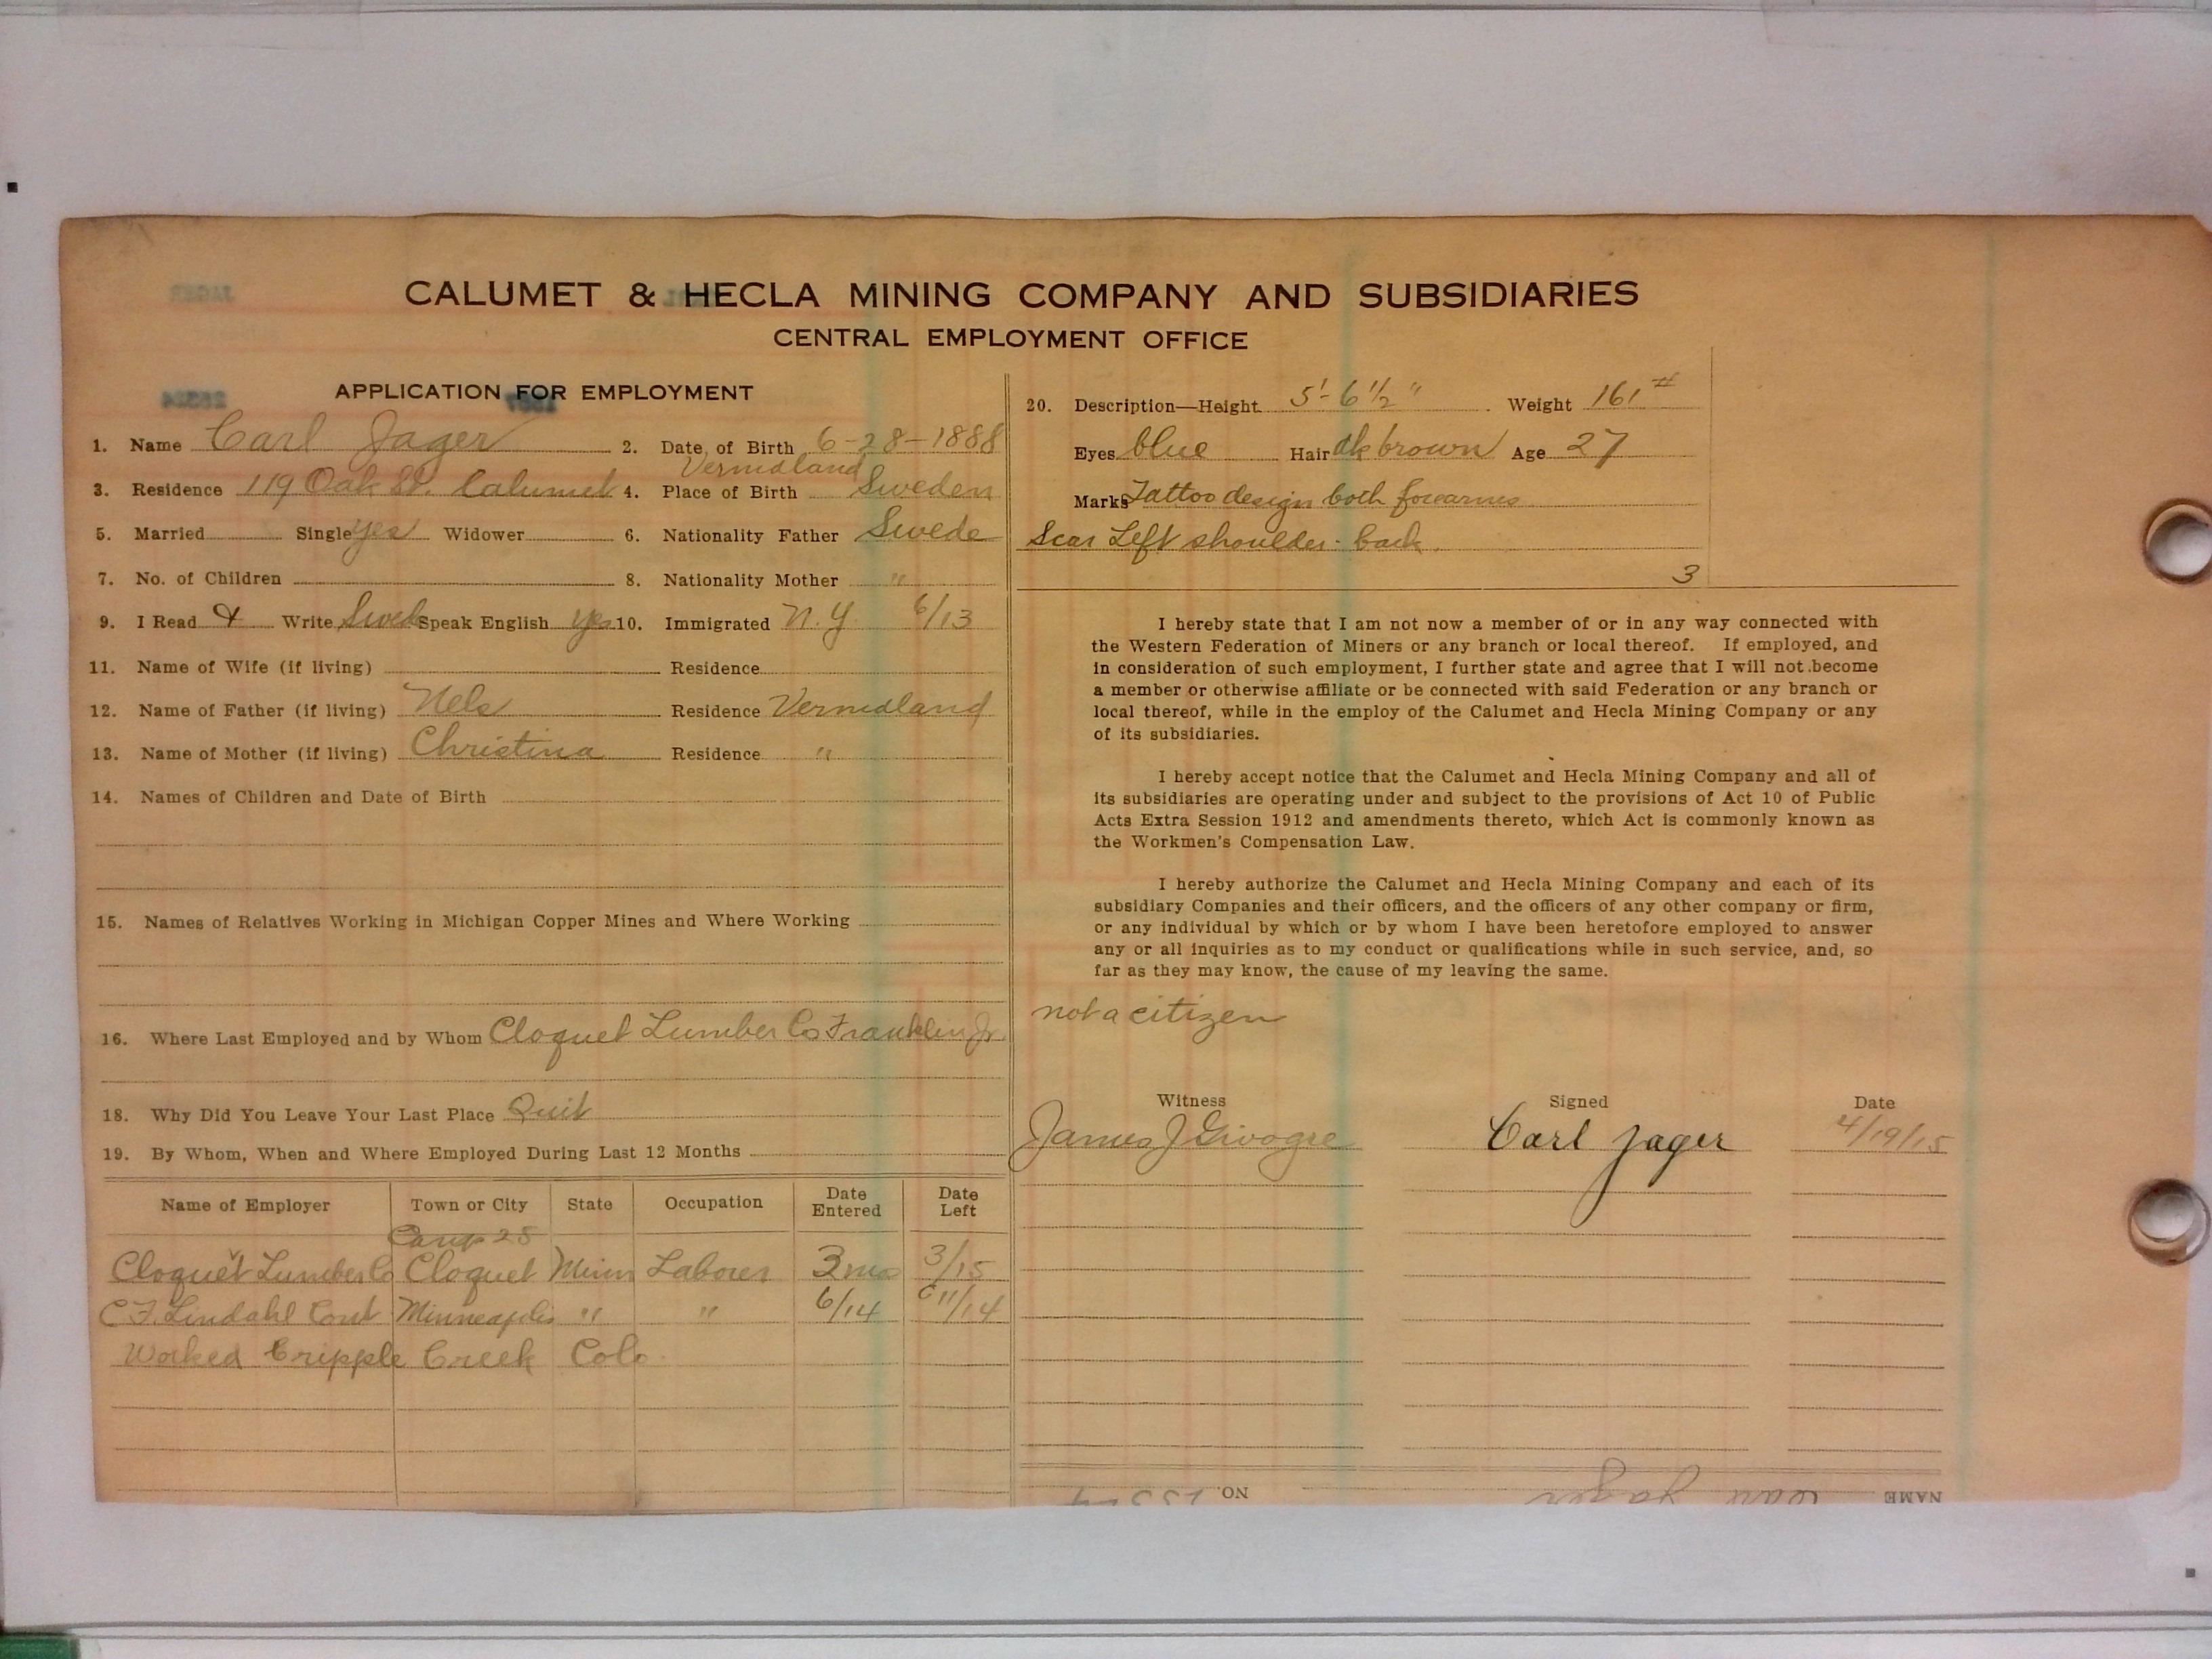 CALUMET & HECLA MINING COMPANY AND SUBSIDIARIES
CENTRAL EMPLOYMENT OFFICE
APPLICATION FOR EMPLOYMENT
1. Name Carl Jager 2. Date of Birth 6-28-1888
Vermdland
3. Residence 119 Oak St. Calumet 4. Place of Birth Sweden
5. Married Single yes Widower 6. Nationality Father Swede
7. No. of Children 8. Nationality Mother "
9. I Read & Write Swed Speak English yes 10. Immigrated N.Y. 6/13
11. Name of Wife (if living) Residence
12. Name of Father (if living) Nels Residence Vermdland
13. Name of Mother (if living) Christina Residence "
14. Names of Children and Date of Birth
15. Names of Relatives Working in Michigan Copper Mines and Where Working
16. Where Last Employed and by Whom Cloquet Lumber Co Franklin Jr.
18. Why Did You Leave Your Last Place Quit
19. By Whom, When and Where Employed During Last 12 Months
Name of Employer Town or City State Occupation Date Entered Date Left
Camp 25
Cloquet Lumber Co Cloquet Minn Laborer 3 mo 3/15
C.F. Lindahl Cont Minneapolis " " 6/14 11/14
Worked Cripple Creek Colo.
20. Description—Height 5'-6 1/2" Weight 161#
Eyes blue Hair dk brown Age 27
Marks Tattoo design both forearms
Scar Left shoulder - back.
3
I hereby state that I am not now a member of or in any way connected with
the Western Federation of Miners or any branch or local thereof. If employed, and
in consideration of such employment, I further state and agree that I will not become
a member or otherwise affiliate or be connected with said Federation or any branch or
local thereof, while in the employ of the Calumet and Hecla Mining Company or any
of its subsidiaries.
I hereby accept notice that the Calumet and Hecla Mining Company and all of
its subsidiaries are operating under and subject to the provisions of Act 10 of Public
Acts Extra Session 1912 and amendments thereto, which Act is commonly known as
the Workmen's Compensation Law.
I hereby authorize the Calumet and Hecla Mining Company and each of its
subsidiary Companies and their officers, and the officers of any other company or firm,
or any individual by which or by whom I have been heretofore employed to answer
any or all inquiries as to my conduct or qualifications while in such service, and, so
far as they may know, the cause of my leaving the same.
not a citizen
Witness Signed Date
James J Carl Jager 4/19/15
NAME Carl Jager NO.